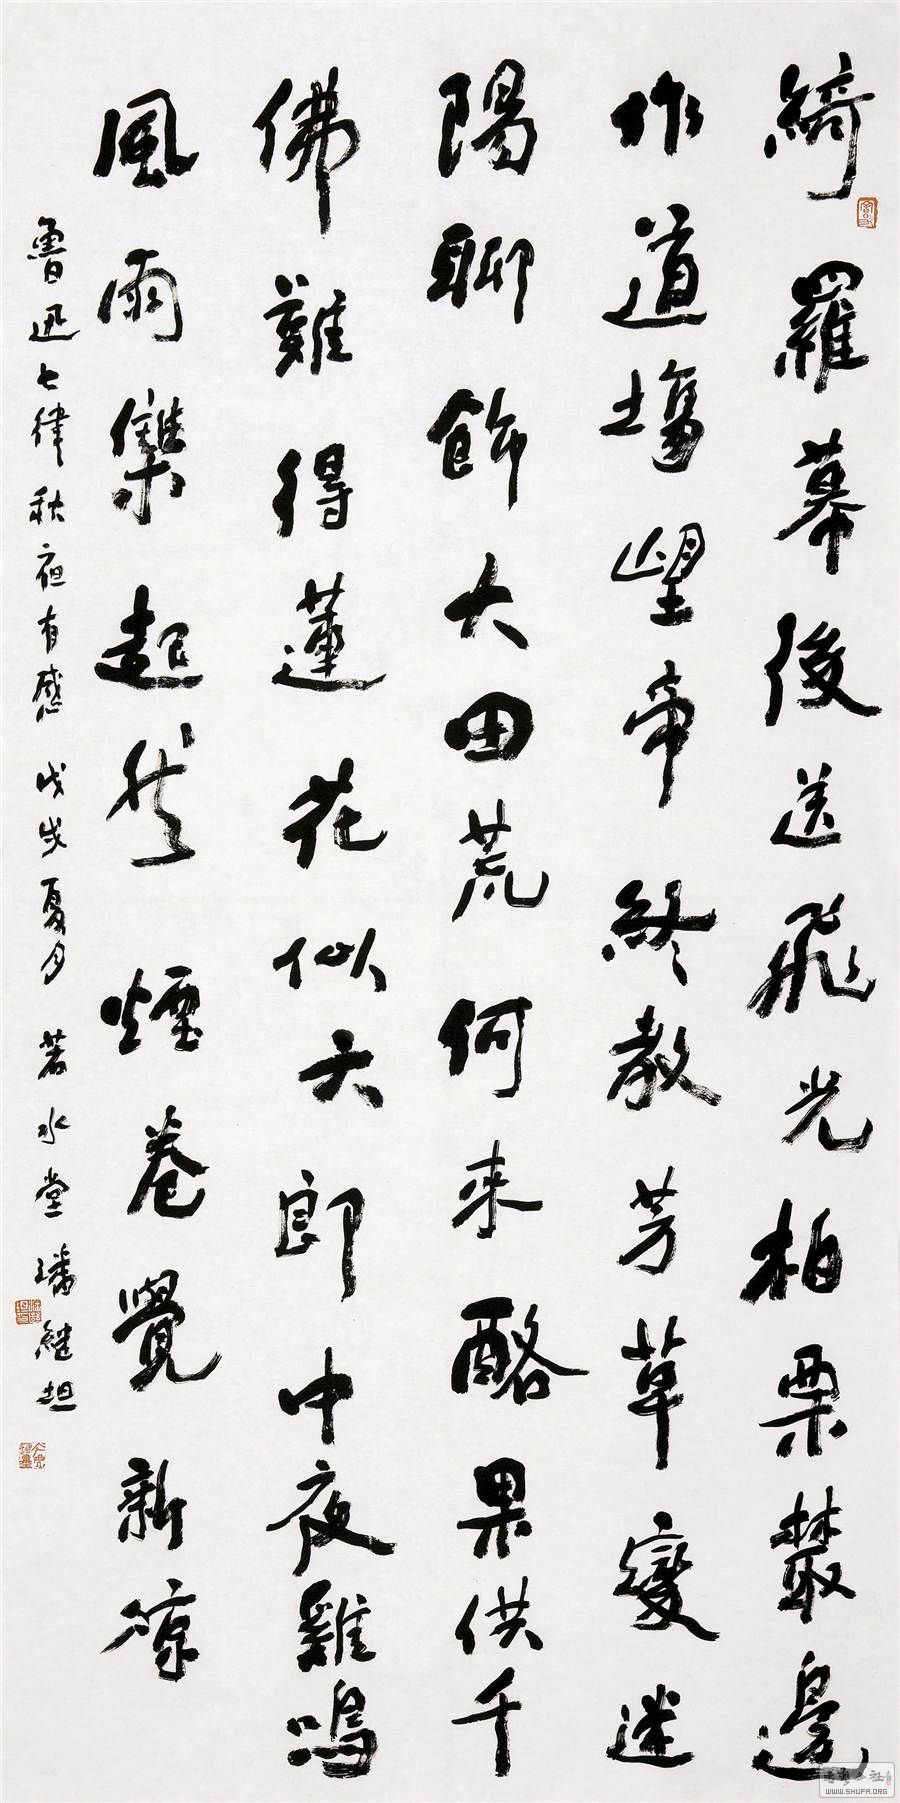 綺羅幕後送飛光柏栗叢邊
作道場望帝終教芳草變迷
陽聊飾大田荒何來酪果供千
佛難得蓮花似六郎中夜雞鳴
風雨集起然煙卷覺新涼
魯迅七律秋夜有感 戊戌夏月 若水堂潘繼坦
WWW.SHUFA.ORG